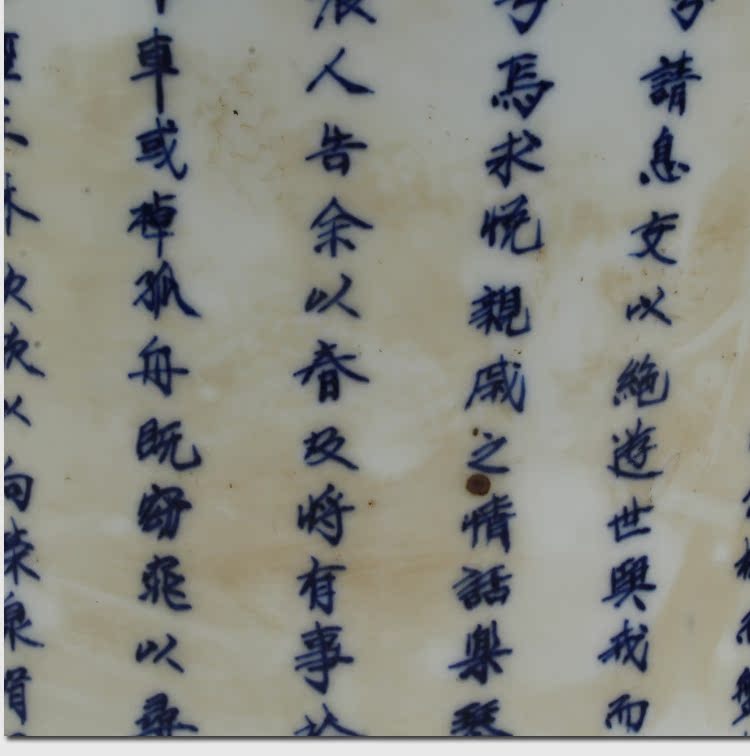 松而盤
兮請息交以絶遊世與我而
兮焉求悅親戚之情話樂琴
農人告余以春及將有事於
車或棹孤舟既窈窕以尋
經丘木欣欣以向榮泉涓